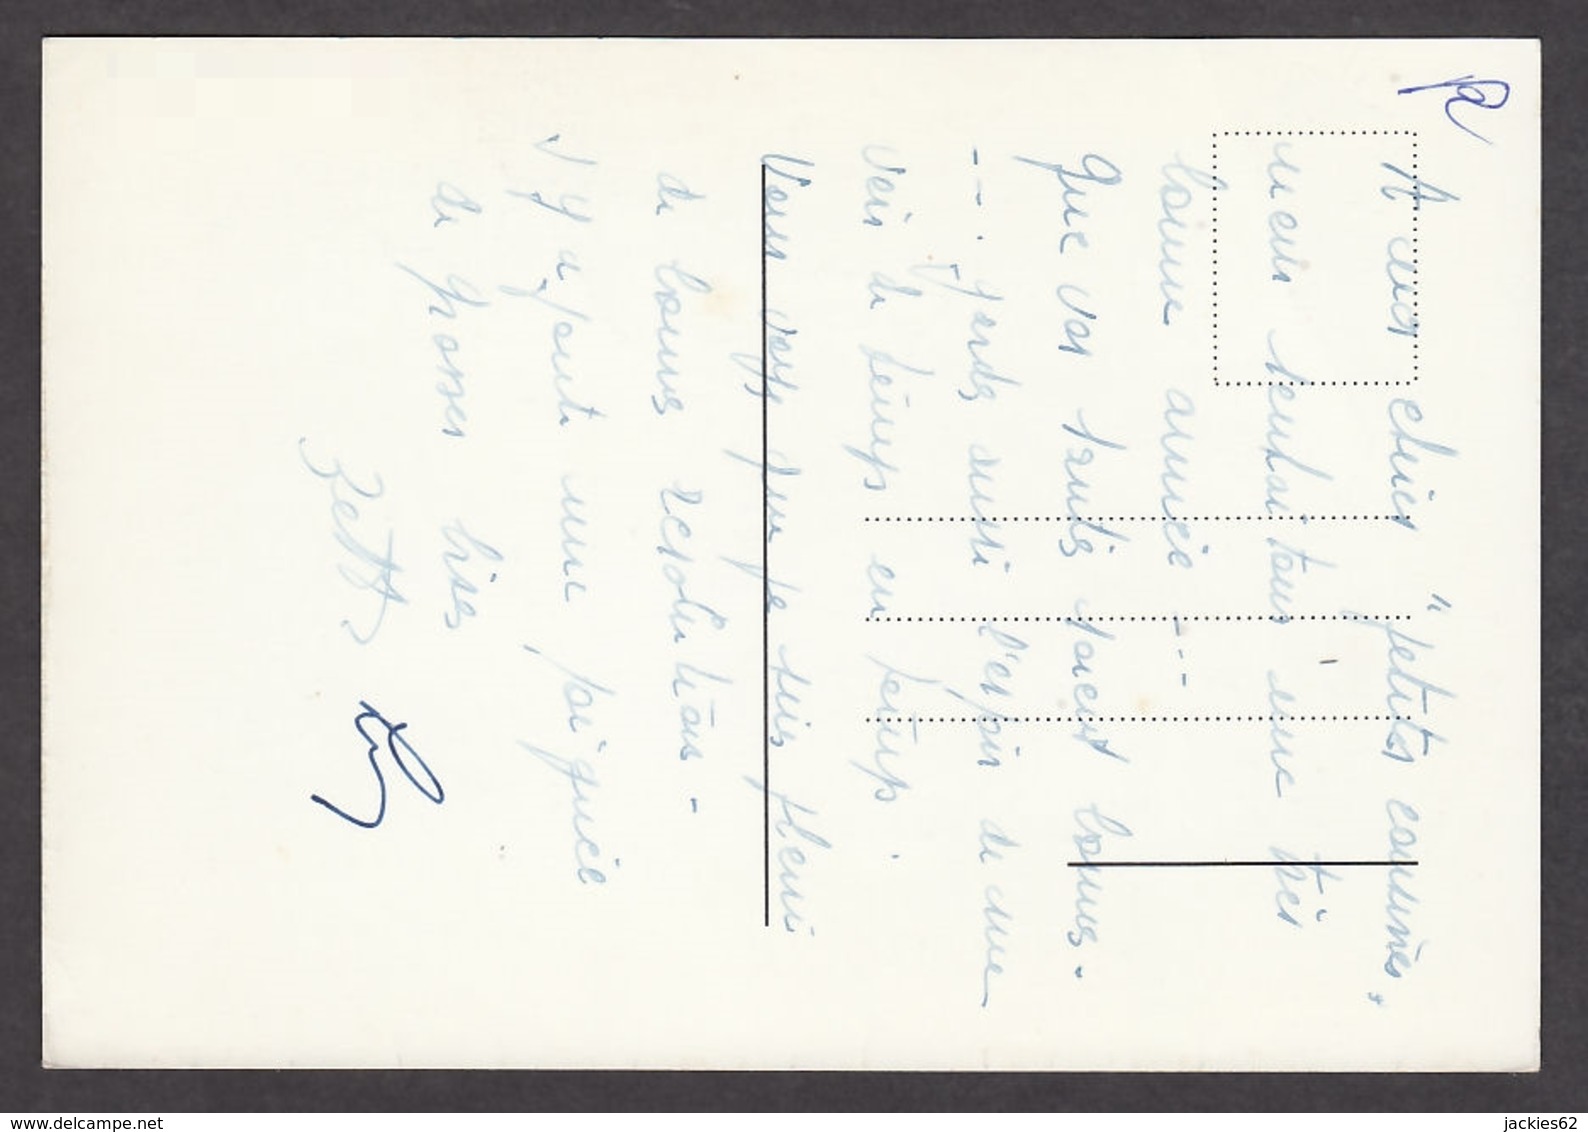 A mes chers "petits cousins"
meu souhaitons une très
bonne année ---
Que vos santés soient bonnes -
--. gards aussi l'espoir de me
voir de temps en temps.
Vous voyez que je suis pleine
de bonnes résolutions -
J'y ajoute une poignée
de grosses bises
Zette
www.delcampe.net
jackies62